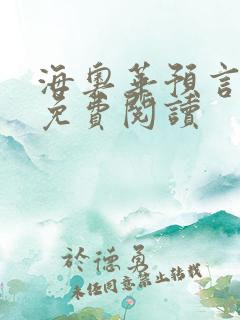 海奧華預言
免費閱讀
於德勇
未經同意禁止轉載